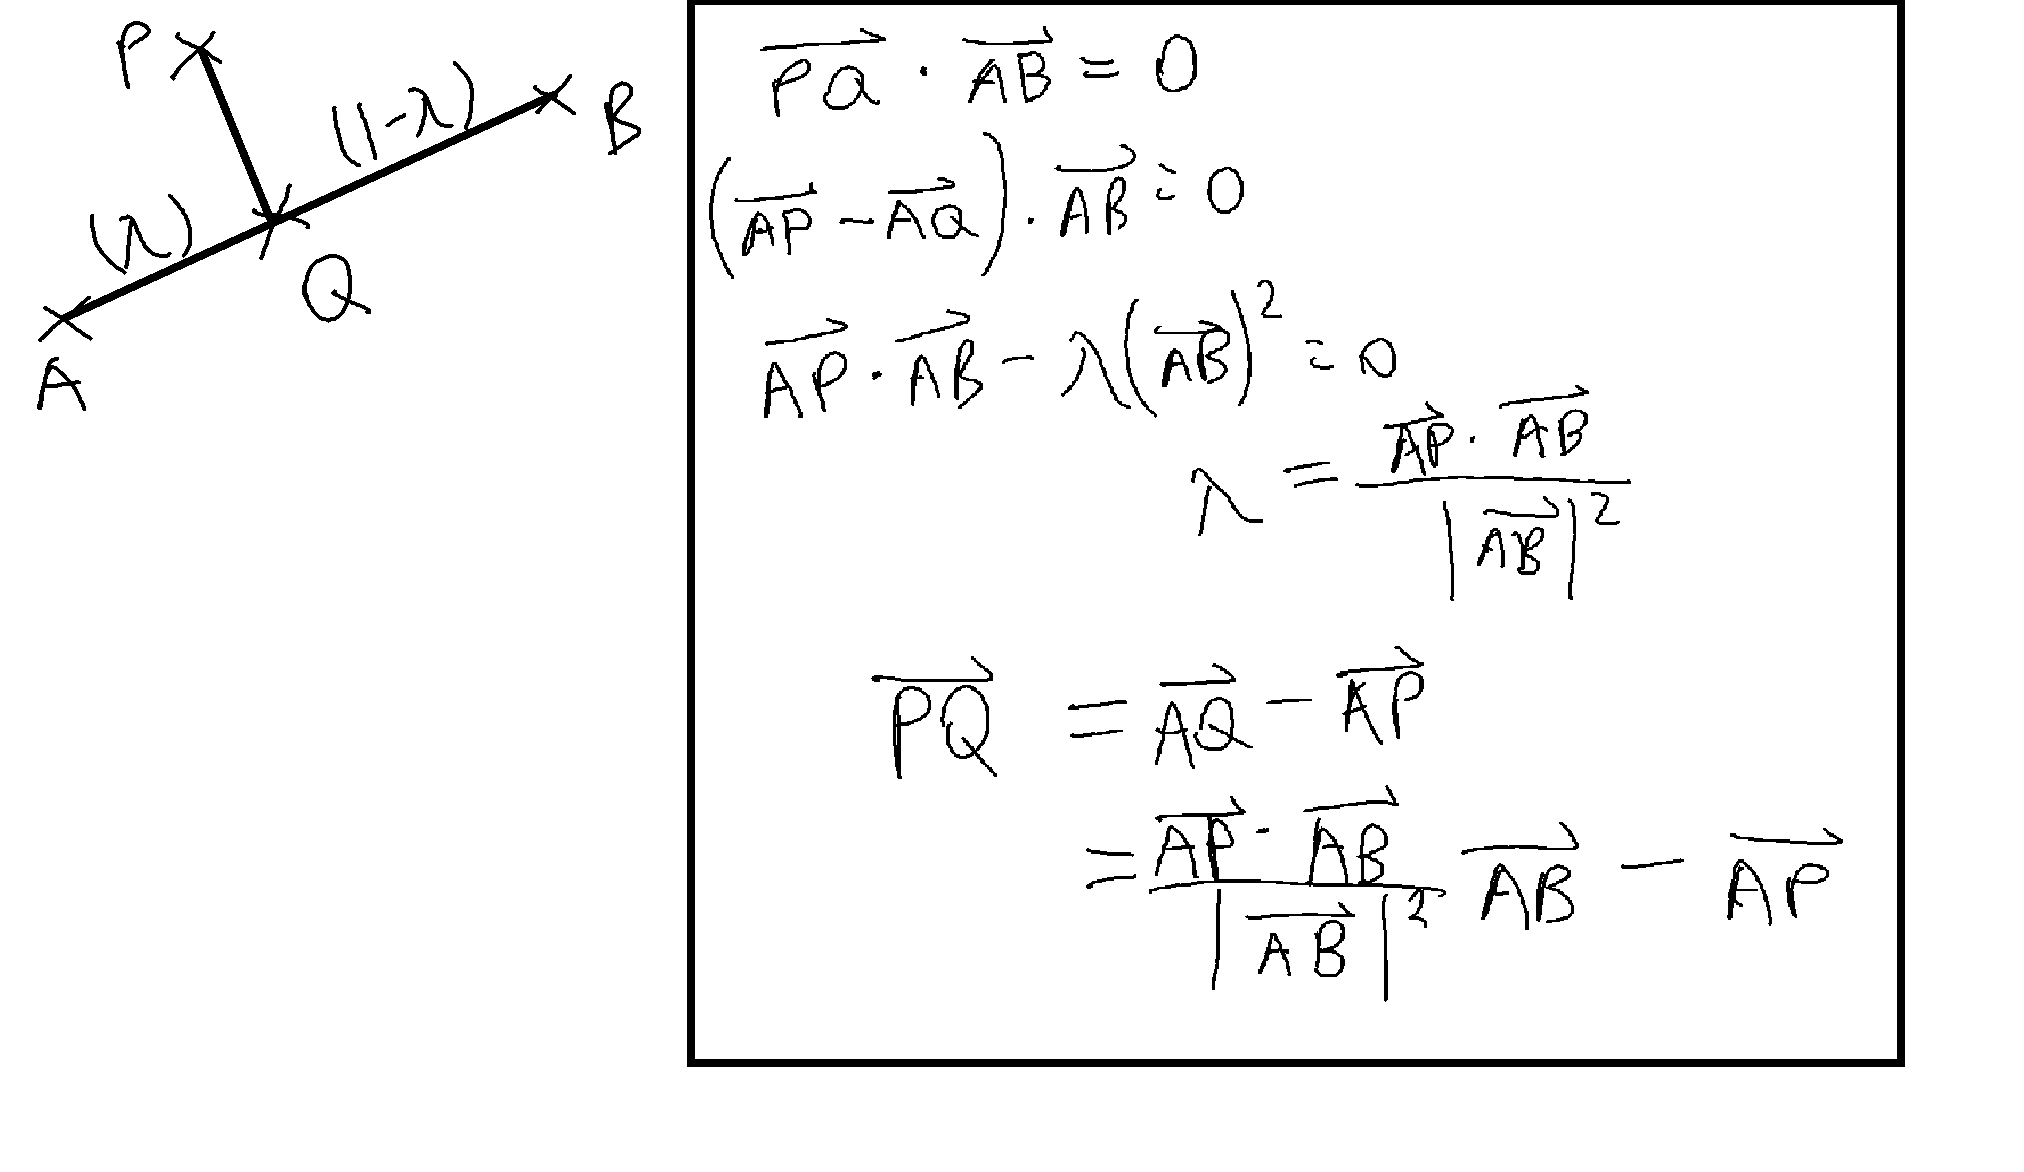 P
(1-λ)
B
(λ)
Q
A
$\overrightarrow{PQ} \cdot \overrightarrow{AB} = 0$
$(\overrightarrow{AP} - \overrightarrow{AQ}) \cdot \overrightarrow{AB} = 0$
$\overrightarrow{AP} \cdot \overrightarrow{AB} - \lambda (\overrightarrow{AB})^2 = 0$
$\lambda = \frac{\overrightarrow{AP} \cdot \overrightarrow{AB}}{|\overrightarrow{AB}|^2}$
$\overrightarrow{PQ} = \overrightarrow{AQ} - \overrightarrow{AP}$
$= \frac{\overrightarrow{AP} \cdot \overrightarrow{AB}}{|\overrightarrow{AB}|^2} \overrightarrow{AB} - \overrightarrow{AP}$